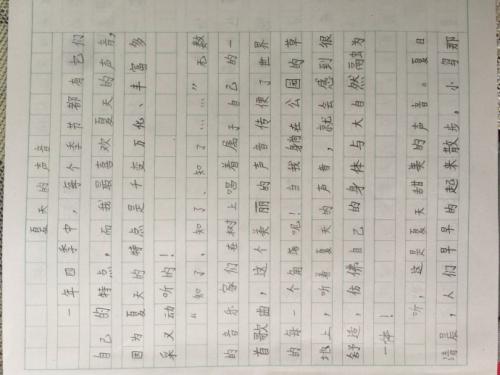 夏天的声音
一年四季中，每个季节都有它们
自己的特点，而我最喜欢夏天的声音，
因为夏天的特点是千变万化、丰富多
采又动听的！
“知了、知了、知了……”无数
的音乐家们在树上唱着属于自己的一
首歌曲，这个美丽的声音传便了世界
的每一个角落呢！当我躺在公园的草
地上，听着夏天的声音，就会感到很
舒适，仿佛自己的身体与大自然融为
一体！
听，这是夏天甜美的声音。夏日
清晨，人们早早的起来散步。小鸟那